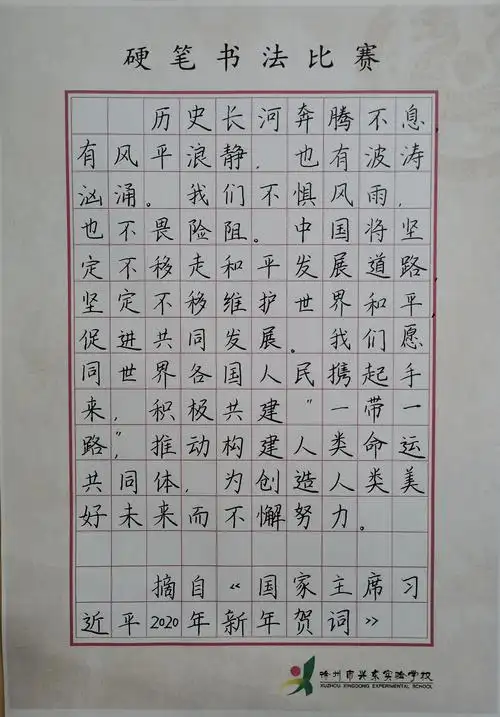 硬笔书法比赛
历史长河奔腾不息,
有风平浪静,也有波涛
汹涌。我们不惧风雨,
也不畏险阻。中国将坚
定不移走和平发展道路,
坚定不移维护世界和平,
促进共同发展。我们愿
同世界各国人民携起手
来,积极共建"一带一
路",推动构建人类命运
共同体,为创造人类美
好未来而不懈努力。
摘自《国家主席习
近平2020年新年贺词》
徐州市兴东实验学校
XUZHOU XINGDONG EXPERIMENTAL SCHOOL